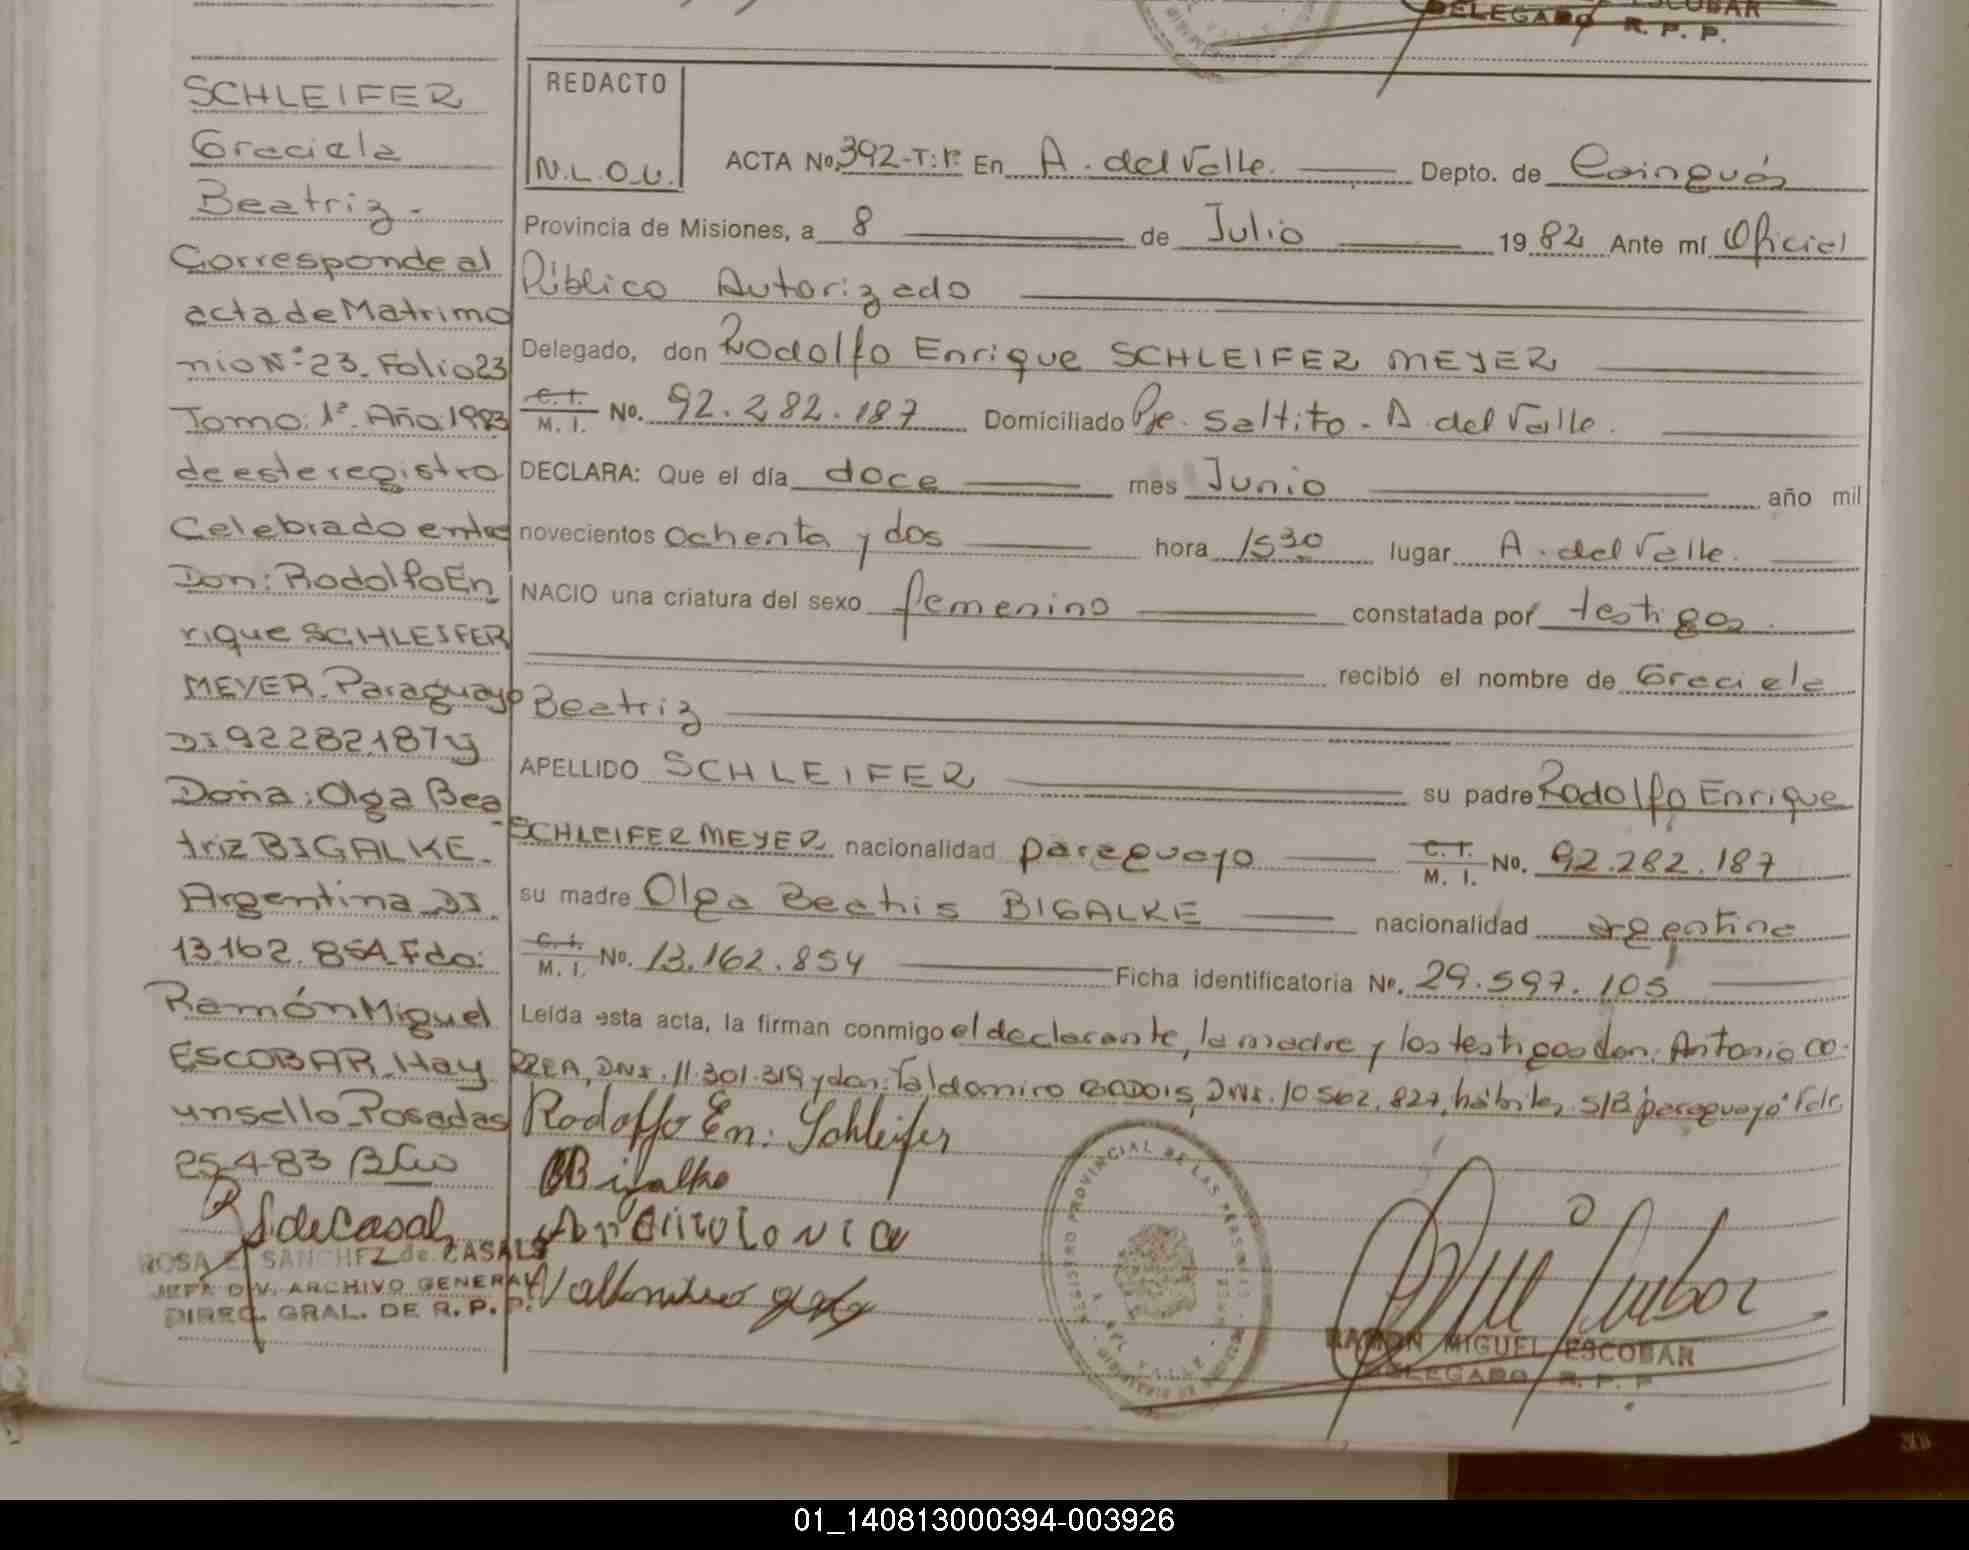 ESCOBAR
DELEGADO R. P. P.
SCHLEIFER
Graciela
Beatriz.-
Corresponde al
acta de Matrimo
nio Nº 23. Folio 23
Tomo: 1º. Año: 1983
de este registro
Celebrado entre
Don: Rodolfo En
rique SCHLEIFER
MEYER. Paraguayo
DI 92282187 y
Doña: Olga Bea
triz BIGALKE.
Argentina DI.
13.162.854. Fdo:
Ramón Miguel
ESCOBAR. Hay
un sello. Posadas
25-4-83
ROSA E. SANCHEZ de CASALS
JEFA DIV. ARCHIVO GENERAL
DIREC. GRAL. DE R. P. P.
REDACTO
N.L.O.U.
ACTA No. 392-T:1º En A. del Valle. Depto. de Cainguás
Provincia de Misiones, a 8 de Julio 19 82 Ante mí Oficial
Público Autorizado
Delegado, don Rodolfo Enrique SCHLEIFER MEYER
C. I. M. I. No. 92.282.187 Domiciliado Pje. Saltito - A. del Valle.
DECLARA: Que el día doce mes Junio año mil
novecientos ochenta y dos hora 1530 lugar A. del Valle.
NACIO una criatura del sexo femenino constatada por testigos.
recibió el nombre de Graciela
Beatriz
APELLIDO SCHLEIFER su padre Rodolfo Enrique
SCHLEIFER MEYER nacionalidad paraguayo C. I. M. I. No. 92.282.187
su madre Olga Beatris BIGALKE nacionalidad argentina
C. I. M. I. No. 13.162.854 Ficha identificatoria No. 29.597.105
Leída esta acta, la firman conmigo el declarante, la madre y los testigos don: Antonio CO-
RREA, DNI. 11.301.319 y don: Valdomiro DNI. 10.562.827, hábiles, S/B "paraguayo" Vale
Rodolfo En. Schleifer
OBigalke
REGISTRO PROVINCIAL DE LAS PERSONAS
RAMON MIGUEL ESCOBAR
DELEGADO R. P. P.
01_140813000394-003926